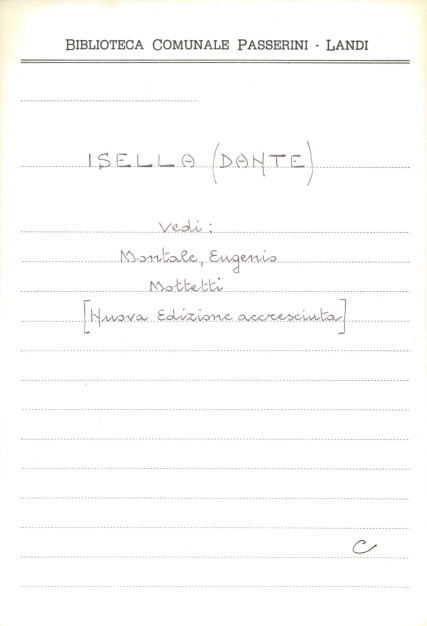 BIBLIOTECA COMUNALE PASSERINI - LANDI
ISELLA (DANTE)
Vedi:
Montale, Eugenio
Mottetti
[Nuova Edizione accresciuta]
C